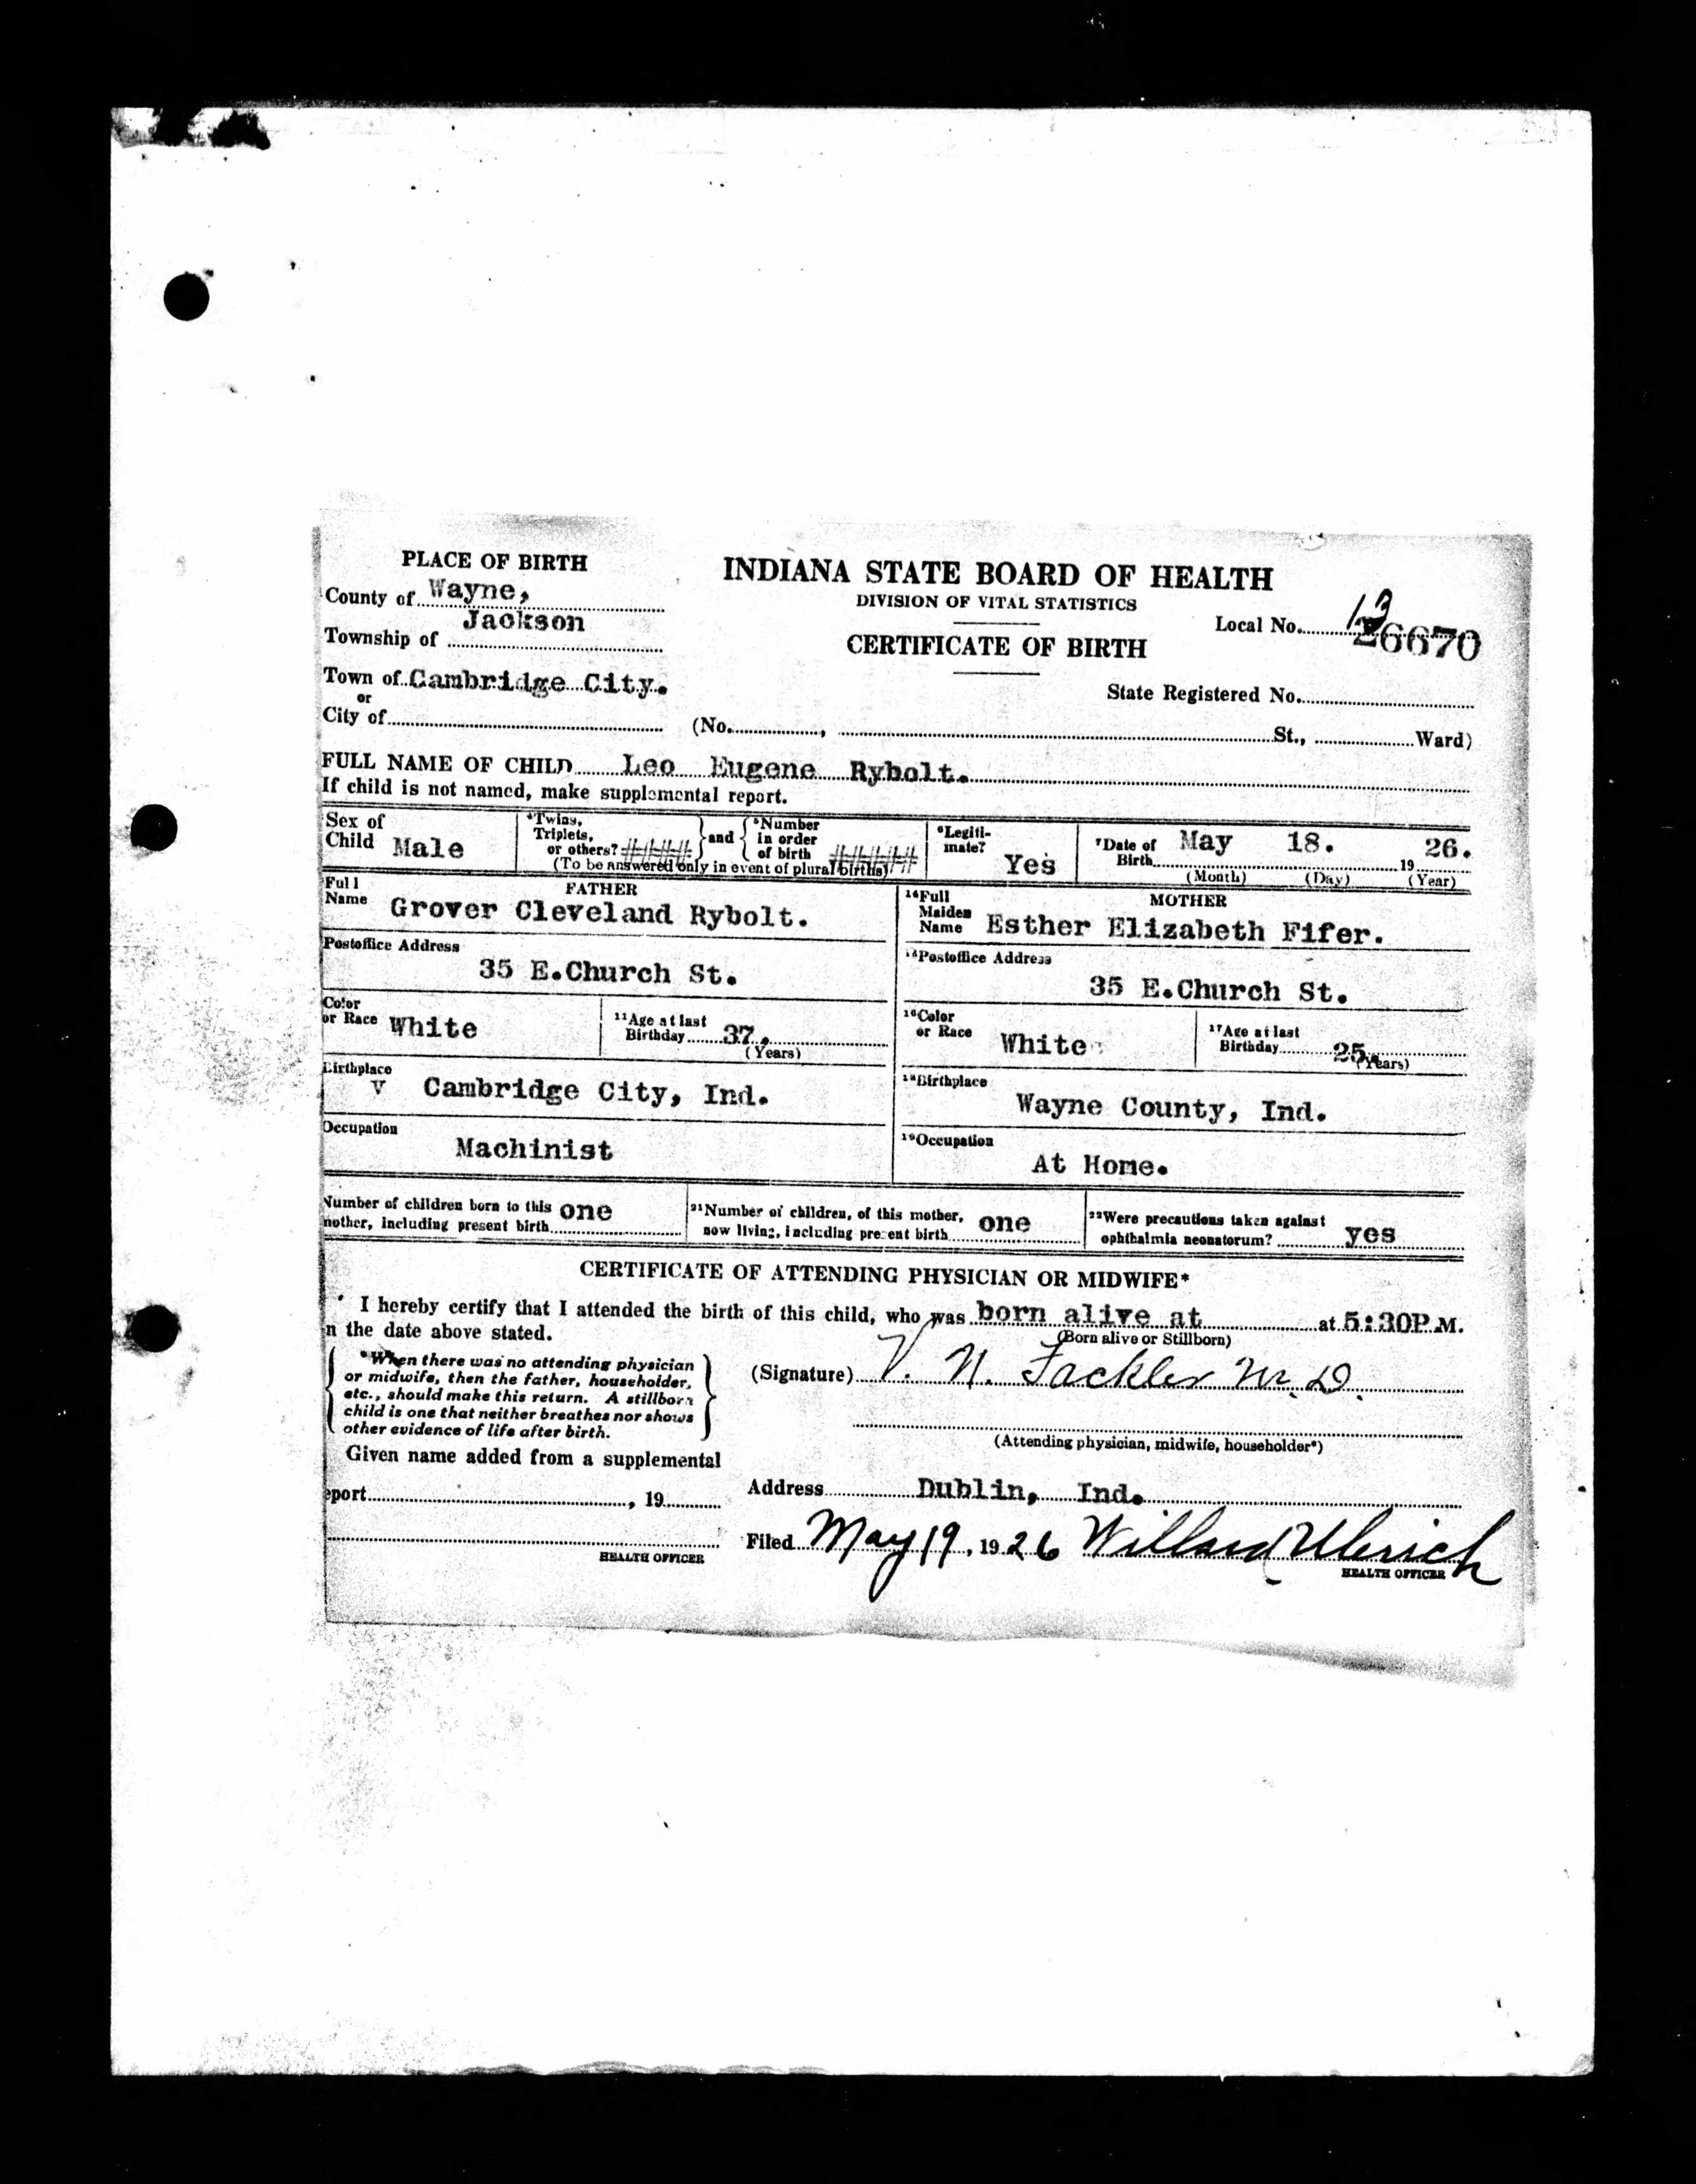 PLACE OF BIRTH
County of Wayne,
Jackson
Township of
Town of Cambridge City.
or
City of
INDIANA STATE BOARD OF HEALTH
DIVISION OF VITAL STATISTICS
CERTIFICATE OF BIRTH
Local No. 13
26670
State Registered No.
(No. , St., Ward)
FULL NAME OF CHILD Leo Eugene Rybolt.
If child is not named, make supplemental report.
Sex of
Child Male
Twins,
Triplets,
or others? ####
and
Number
in order
of birth #####
(To be answered only in event of plural births)
Legiti-
mate?
Yes
7Date of
Birth May 18. 19 26.
(Month) (Day) (Year)
Full
Name
FATHER
Grover Cleveland Rybolt.
14Full
Maiden
Name
MOTHER
Esther Elizabeth Fifer.
Postoffice Address
35 E.Church St.
Postoffice Address
35 E.Church St.
Color
or Race White
11Age at last
Birthday 37.
(Years)
16Color
or Race White
17Age at last
Birthday 25.
(Years)
Birthplace
v Cambridge City, Ind.
18Birthplace
Wayne County, Ind.
Occupation
Machinist
19Occupation
At Home.
Number of children born to this
mother, including present birth one
21Number of children, of this mother,
now living, including present birth one
22Were precautions taken against
ophthalmia neonatorum? yes
CERTIFICATE OF ATTENDING PHYSICIAN OR MIDWIFE*
I hereby certify that I attended the birth of this child, who was born alive at at 5:30P.M.
n the date above stated.
(Born alive or Stillborn)
*When there was no attending physician
or midwife, then the father, householder,
etc., should make this return. A stillborn
child is one that neither breathes nor shows
other evidence of life after birth.
(Signature) V. N. Fackler M.D.
(Attending physician, midwife, householder*)
Given name added from a supplemental
eport , 19
HEALTH OFFICER
Address Dublin, Ind.
Filed May 19, 1926 Willard Ulerich
HEALTH OFFICER